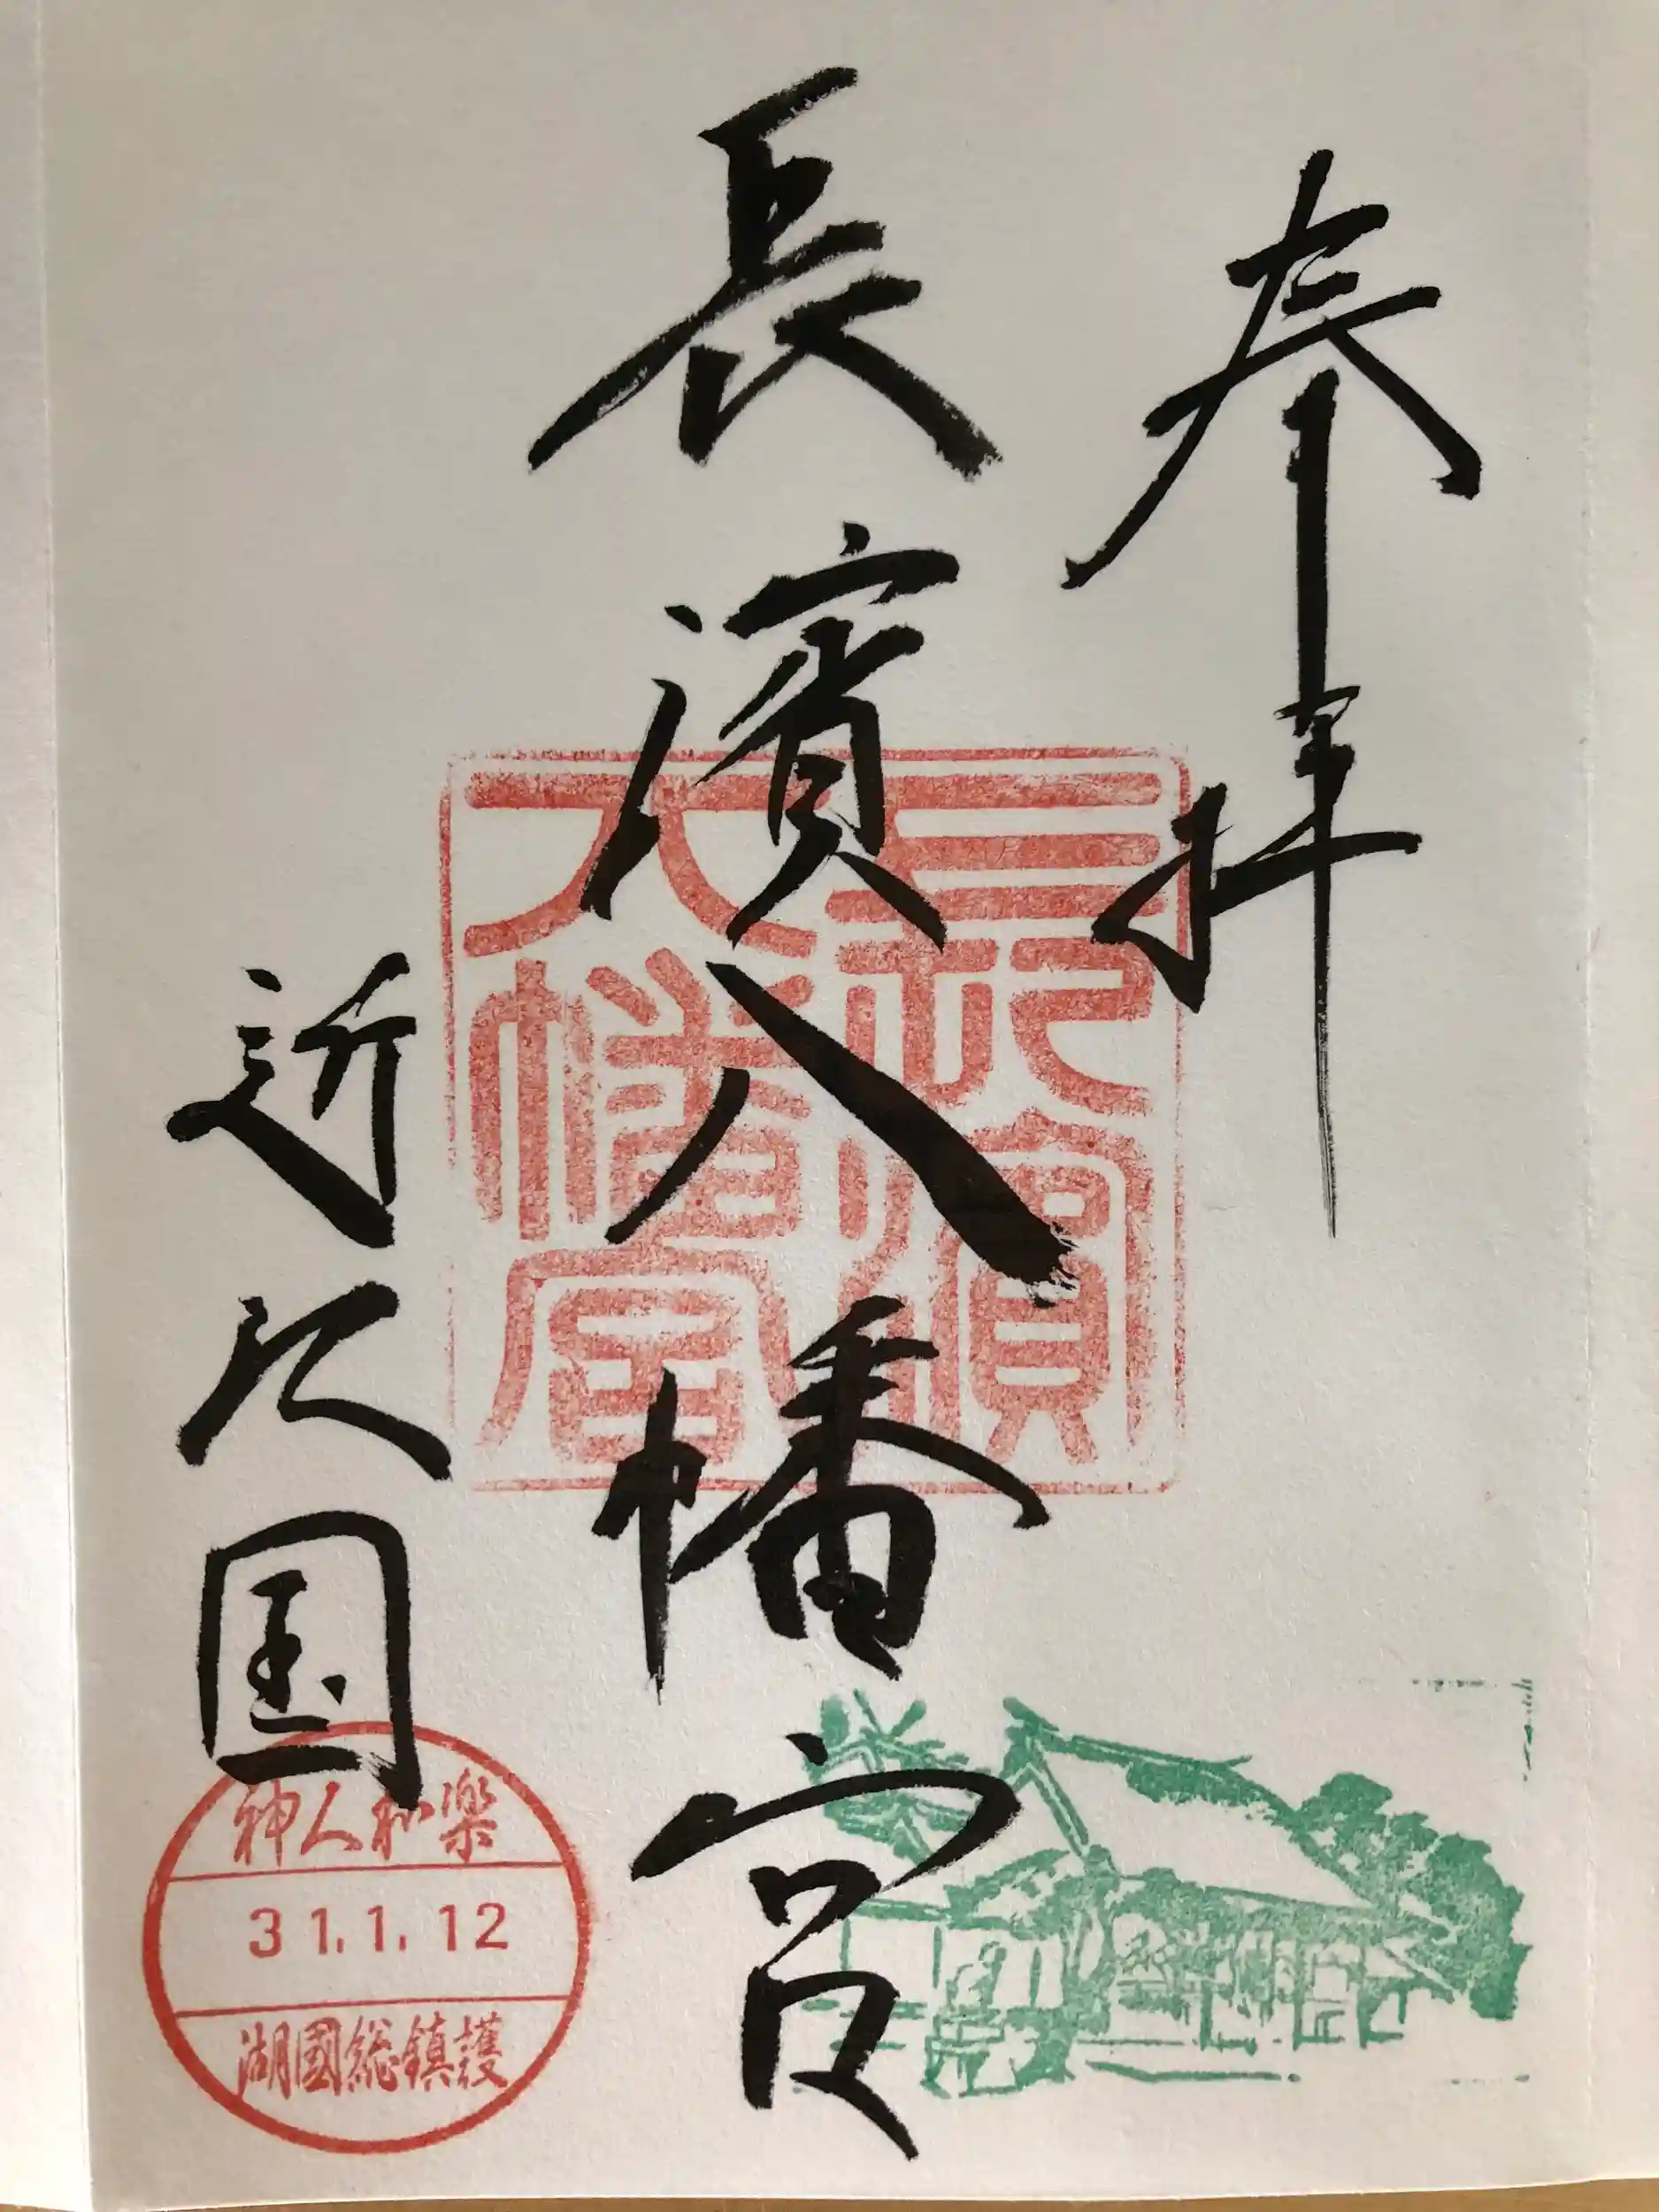 奉拝
長濱八幡宮
長濱八幡宮
近江国
神人和楽
31.1.12
湖國総鎮護